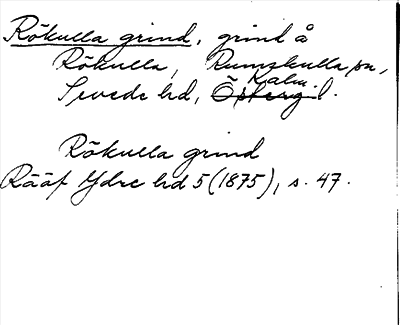 Rökulla grind, grind å
Rökulla, Rumskulla sn,
Sevede hd, Kalm. l.
Rökulla grind
Rääf Ydre hd 5 (1875), s. 47.